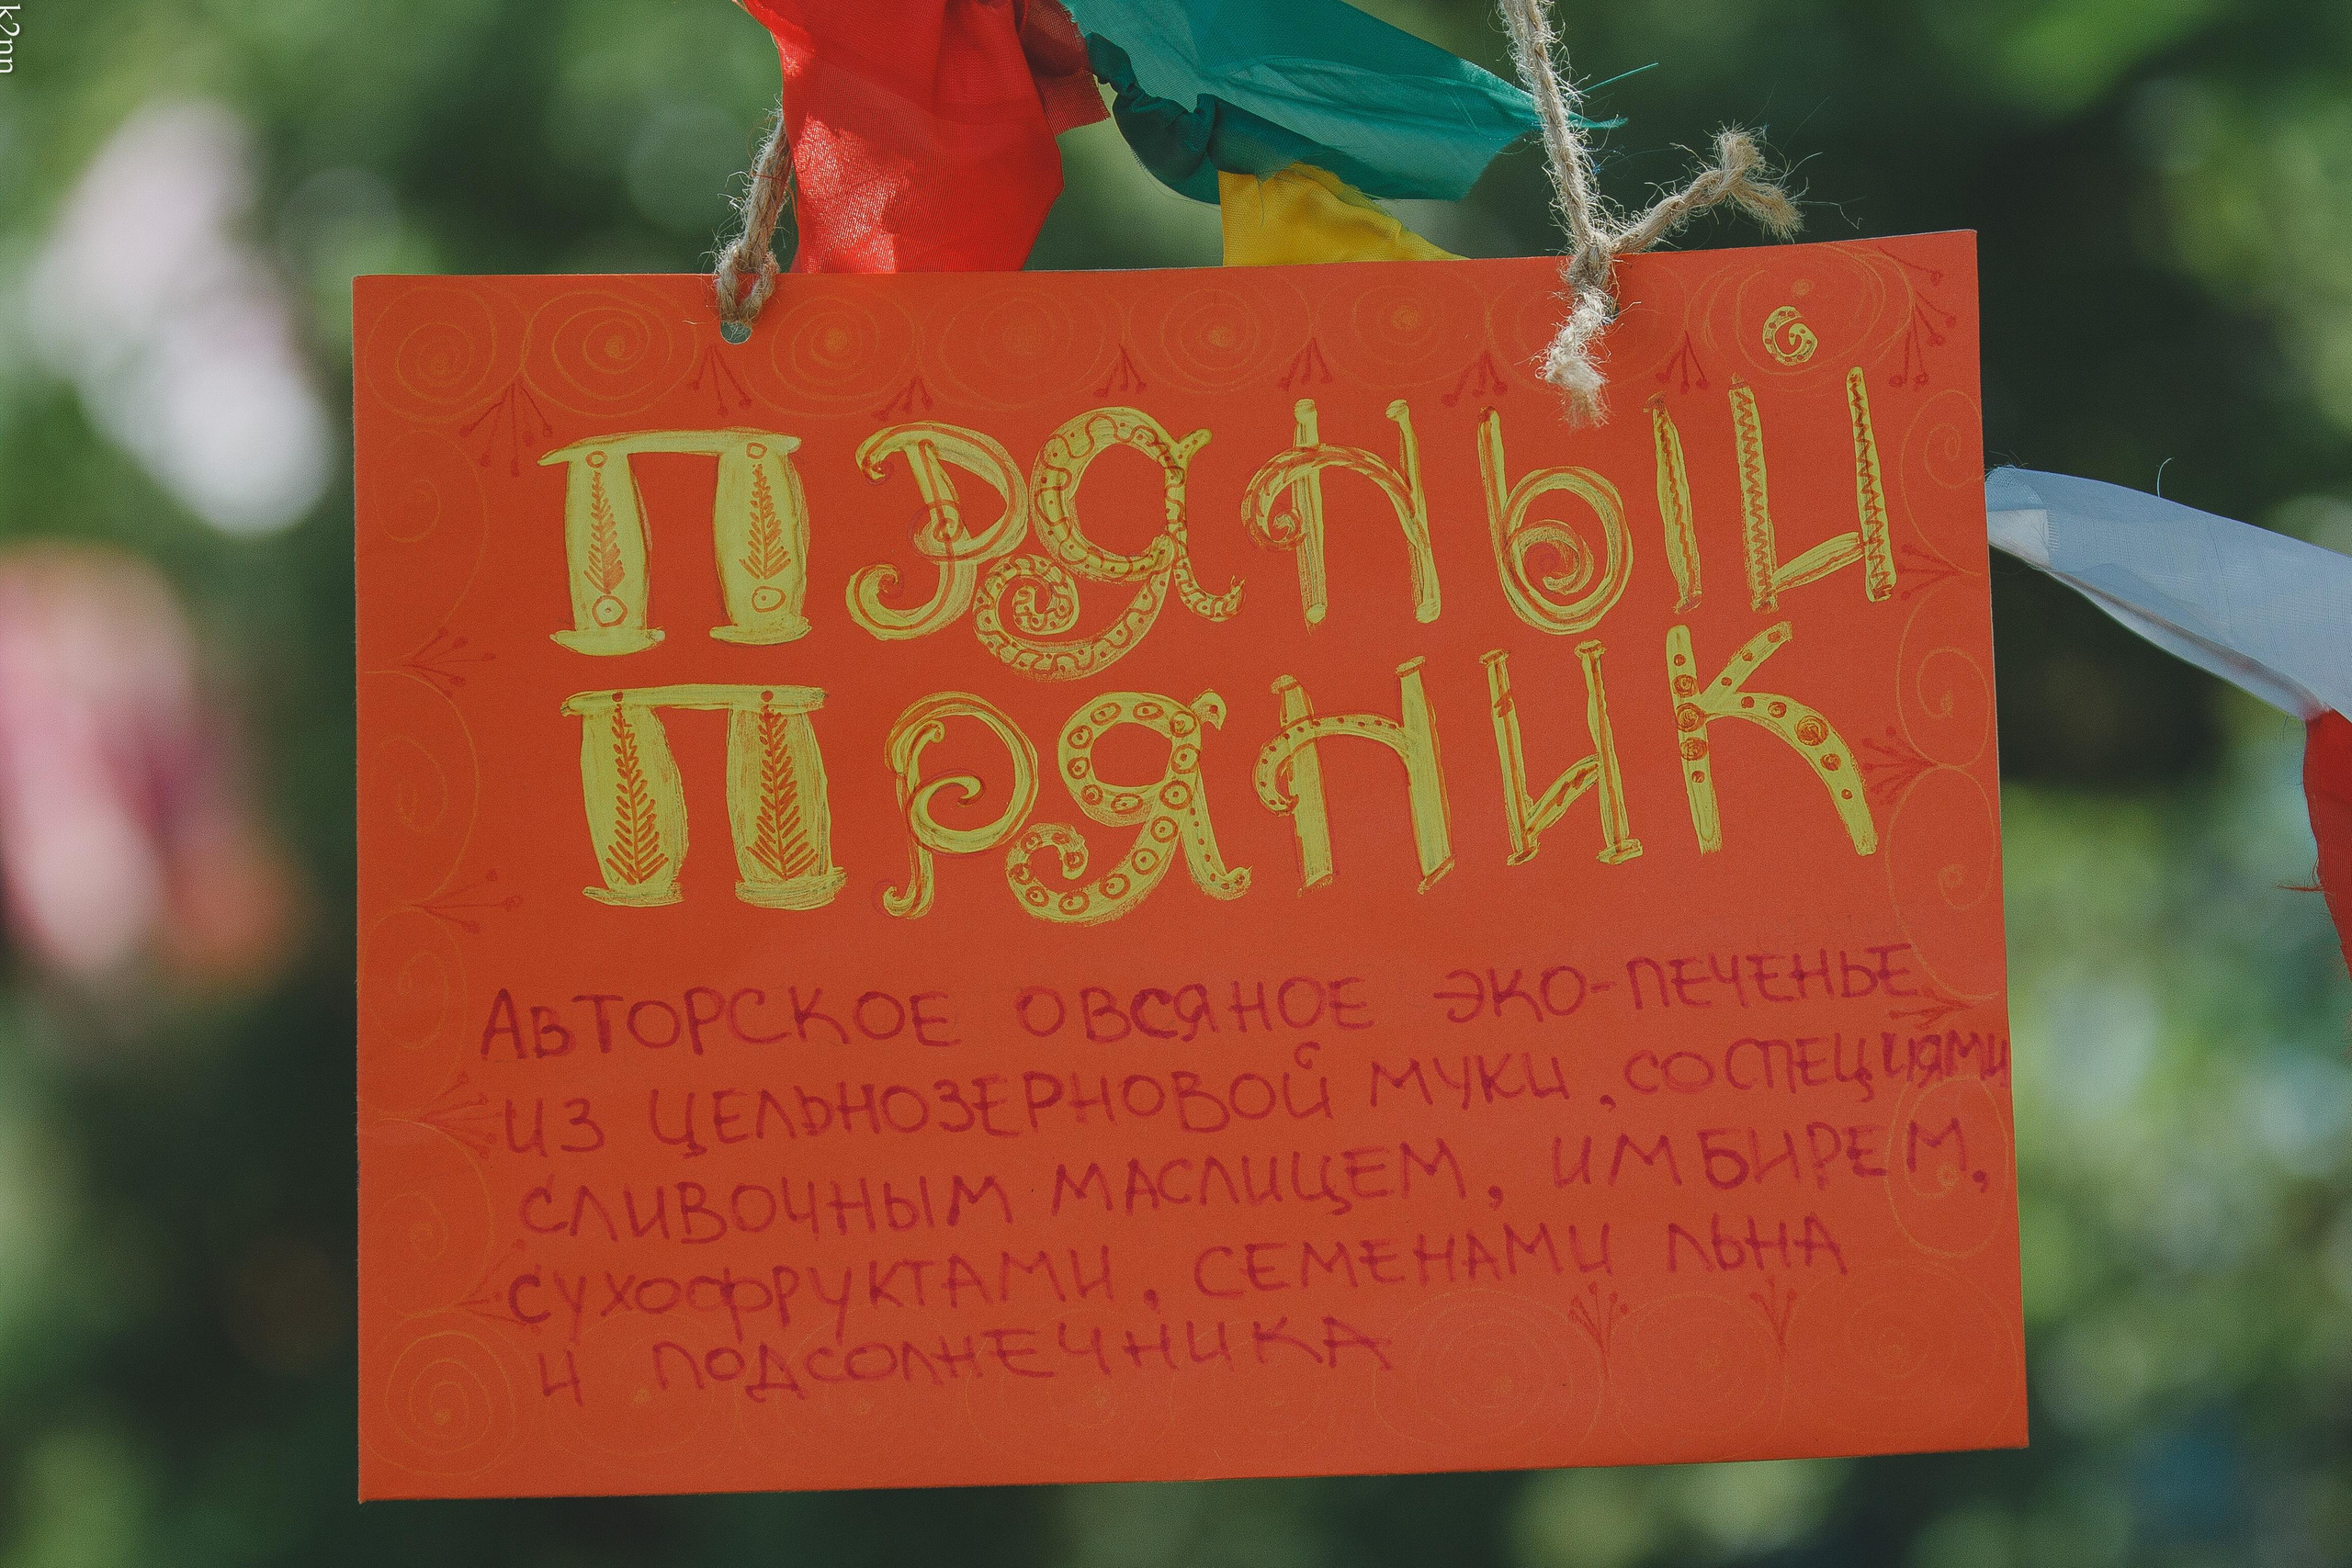 k2nn
ПРЯНЫЙ
ПРЯНИК
АВТОРСКОЕ ОВСЯНОЕ ЭКО-ПЕЧЕНЬЕ
ИЗ ЦЕЛЬНОЗЕРНОВОЙ МУКИ, СО СПЕЦИЯМИ
СЛИВОЧНЫМ МАСЛИЦЕМ, ИМБИРЕМ,
СУХОФРУКТАМИ, СЕМЕНАМИ ЛЬНА
И ПОДСОЛНЕЧНИКА